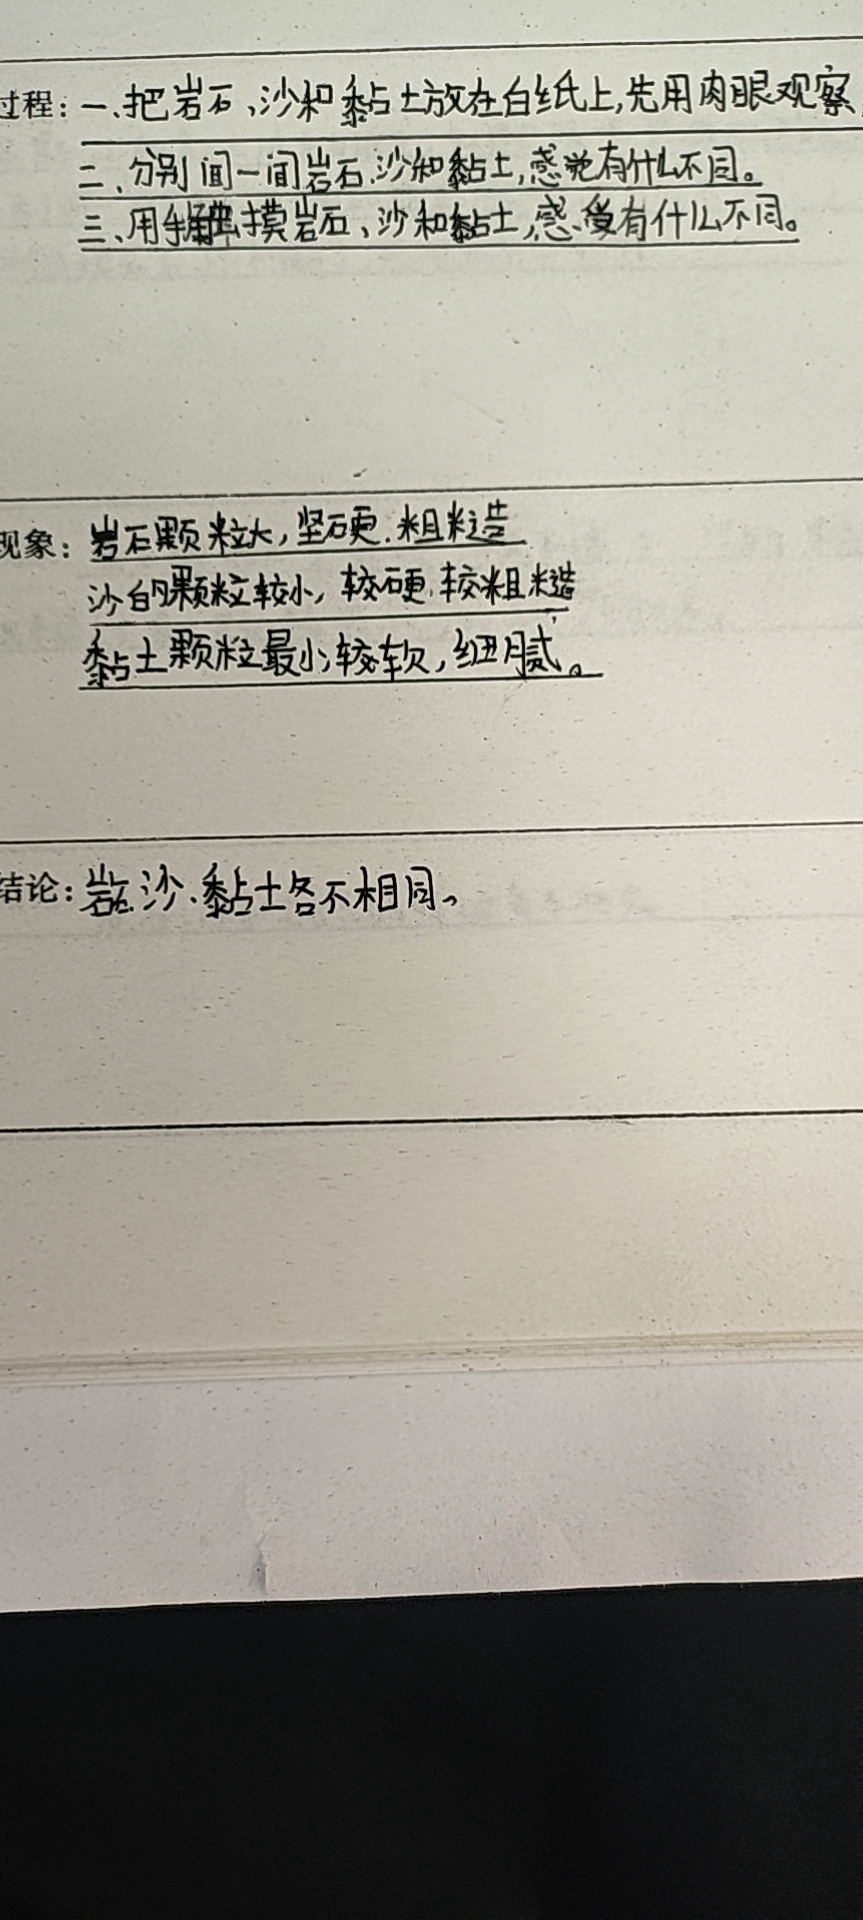 过程：一、把岩石、沙和黏土放在白纸上，先用肉眼观察，
二、分别间一间岩石、沙和黏土，感觉有什么不同。
三、用手触摸岩石、沙和黏土，感受有什么不同。
现象：岩石颗粒大，坚硬、粗糙
沙的颗粒较小，较硬、较粗糙
黏土颗粒最小，较软，细腻。
结论：岩石、沙、黏土各不相同。